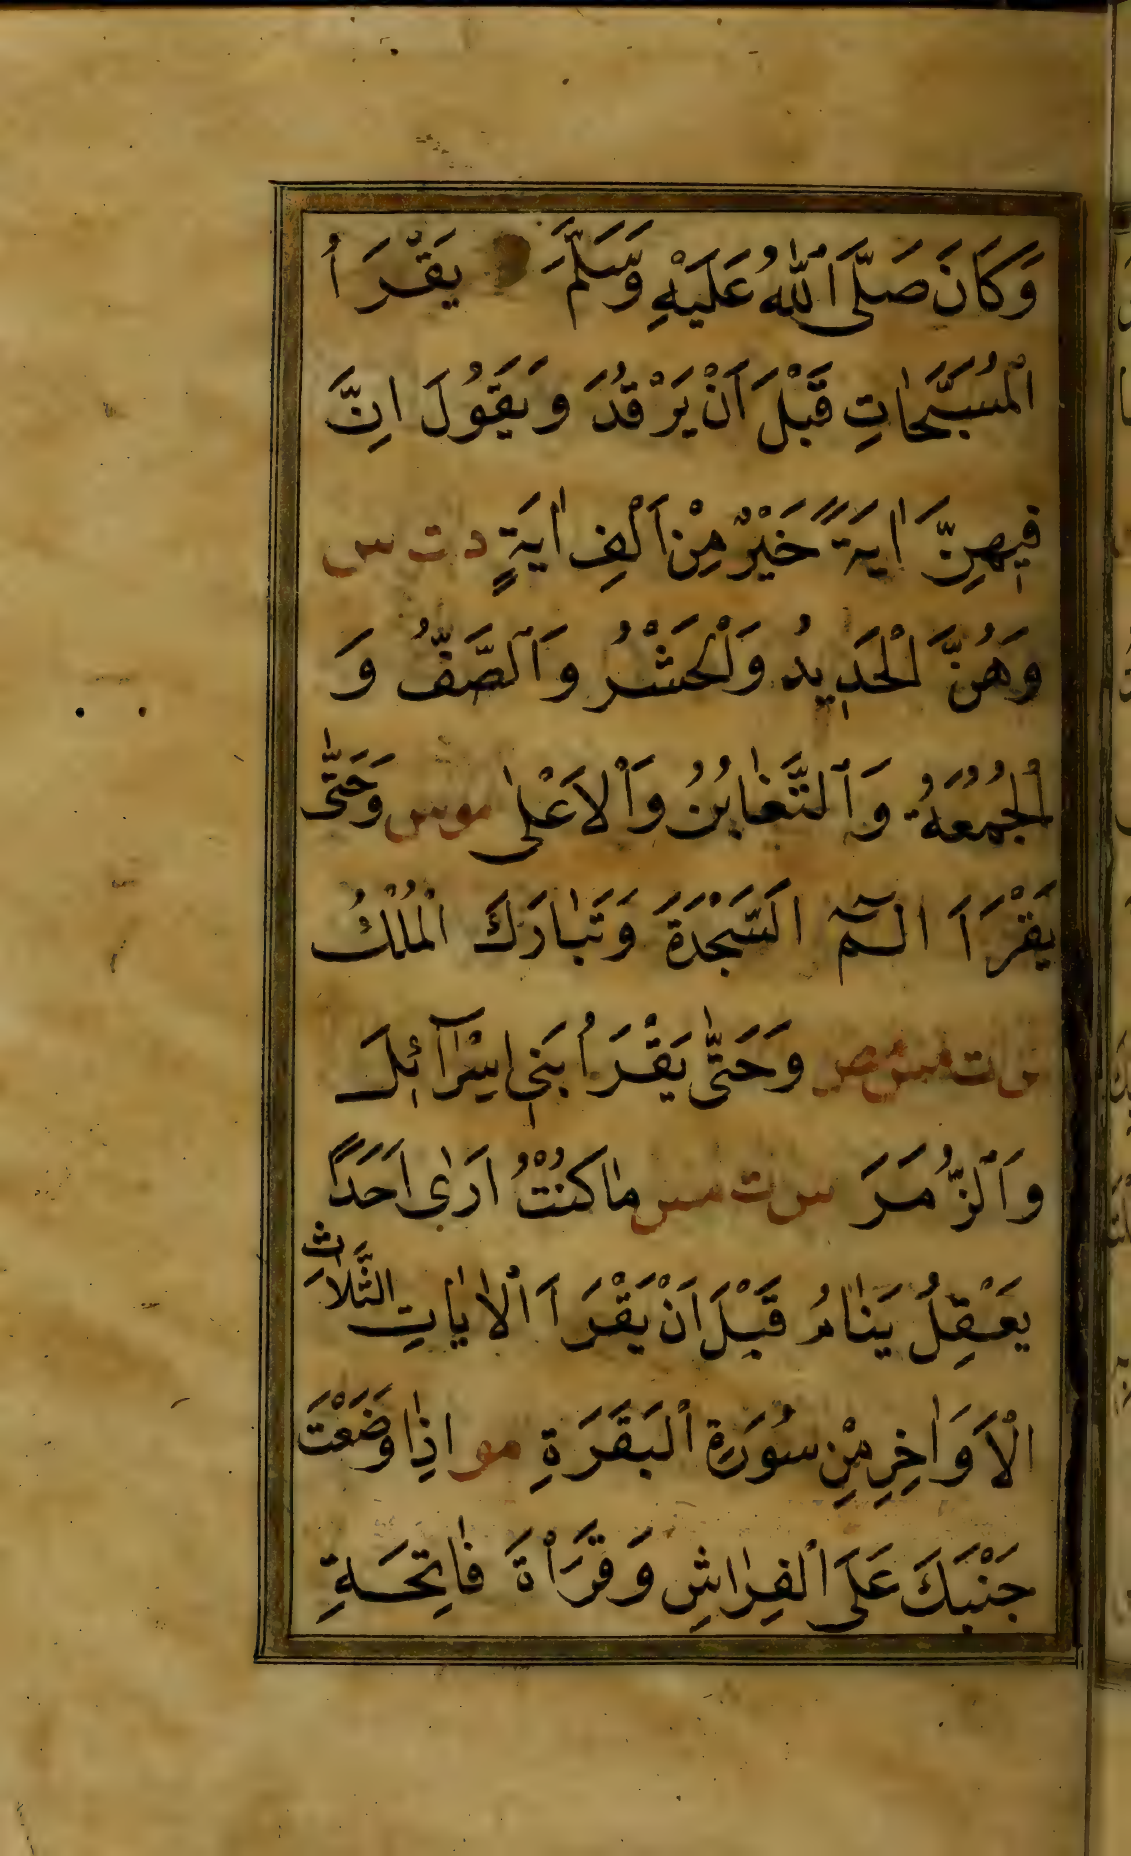 وَكَانَ صَلَّى اللّٰهُ عَلَيْهِ وَسَلَّمَ يَقْرَأُ
الْمُسَبِّحَاتِ قَبْلَ اَنْ يَرْقُدَ وَيَقُولَ اِنَّ
فِيهِنَّ اٰيَةً خَيْرٌ مِنْ اَلْفِ اٰيَةٍ د ت س
وَهُنَّ الْحَدِيدُ وَالْحَشْرُ وَالصَّفُّ وَ
الْجُمُعَةُ وَالتَّغَابُنُ وَالْاَعْلٰى مو س وَحَتّٰى
يَقْرَاَ الٓمٓ السَّجْدَةَ وَتَبَارَكَ الْمُلْكُ
س ت مص وَحَتّٰى يَقْرَأُ بَنِي اِسْرَآئِلَ
وَالزُّمَرَ س ت مس مَا كُنْتُ اَرٰى اَحَدًا
يَعْقِلُ يَنَامُ قَبْلَ اَنْ يَقْرَاَ الْاٰيَاتِ الثَّلَاثَ
الْاَوَاخِرِ مِنْ سُورَةِ الْبَقَرَةِ مو اِذَا وَضَعْتَ
جَنْبَكَ عَلَى الْفِرَاشِ وَقَرَأْةَ فَاتِحَةِ